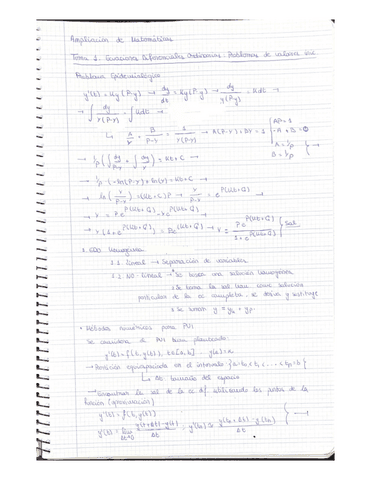 Ampliación de Matemáticas
Tema 1. Ecuaciones Diferenciales Ordinarias. Problemas de valores
Problema Epidemiológico
y'(t) = Ky(P-y) → dy/dt = Ky(P-y) → dy/y(P-y) = Kdt →
→ ∫ dy/y(P-y) = ∫ Kdt →
↳ A/y + B/P-y = 1/y(P-y) → A(P-y)+By = 1 { AP=1
-A+B=0
A = 1/P
B = 1/P
→ 1/P (∫ dy/P-y + ∫ dy/y) = Kt+C →
→ 1/P · (-ln(P-y)+ln(y)) = Kt+C →
→ ln (y/P-y) = (Kt+C)P → y/P-y = e^P(Kt+C)
→ y = P e^P(Kt+C) - y e^P(Kt+C)
→ y (1+e^P(Kt+C)) = Pe^P(Kt+C) → y = P e^P(Kt+C) / 1+e^P(Kt+C) } Sol.
2.1. Lineal → Separación de variables
2.2. NO-lineal → Se busca una solución homogénea
Se toma la sol como solución
particular de la ec completa. se deriva y sustituye
Se suman y = yh + yp
• Métodos numéricos para PVI
Se considera el PVI bien planteado:
y'(t) = f(t, y(t)), t∈[a,b], y(a)=α
→ Partición equiespaciada en el intervalo {a=t0<t1<...<tn=b}
↳ Δt tamaño del espacio
→ Encontrar la sol de la ec dif. utilizando los puntos de la
(aproximación)
y'(t) = f(t, y(t))
y'(t) = lim Δt→0 y(t+Δt)-y(t) / Δt ; y'(tn) ≈ y(tn+Δt)-y(tn) / Δt